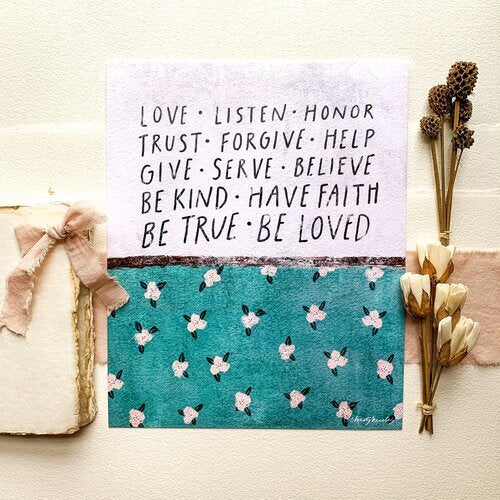 LOVE · LISTEN · HONOR
TRUST · FORGIVE · HELP
GIVE · SERVE · BELIEVE
BE KIND · HAVE FAITH
BE TRUE · BE LOVED